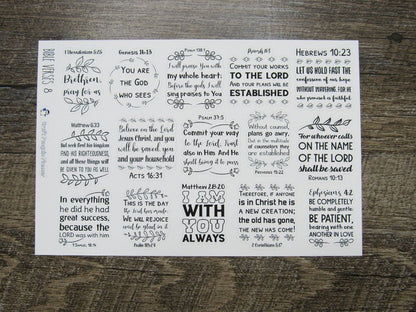 BIBLE VERSES 8
1 Thessalonians 5:25
Brethren,
pray for us
Genesis 16:13
YOU ARE
THE GOD
WHO SEES
Psalm 138:1
I will praise You with
my whole heart;
Before the gods I will
sing praises to You
Proverb 16:3
COMMIT YOUR WORKS
TO THE LORD
AND YOUR PLANS WILL BE
ESTABLISHED
HEBREWS 10:23
LET US HOLD FAST THE
CONFESSION OF OUR HOPE
WITHOUT WAVERING, FOR HE
WHO PROMISED IS FAITHFUL
Matthew 6:33
But seek first his kingdom
AND HIS RIGHTEOUSNESS,
and all these things will
BE GIVEN TO YOU AS WELL
Believe on the Lord
Jesus Christ, and you
will be saved, you
and your household
ACTS 16:31
PSALM 37:5
Commit your way
to the Lord, Trust
also in Him And He
shall bring it to pass
Without counsel,
plans go awry,
But in the multitude
of counselors they
are established
PROVERBS 15:22
For whoever calls
ON THE NAME
OF THE LORD
shall be saved
ROMANS 10:13
In everything
he did he had
great success,
because the
LORD was with him
1 SAMUEL 18:14
THIS IS THE DAY
the Lord has made;
WE WILL REJOICE
and be glad in it
Psalm 118:24
MATTHEW 28:20
I AM
WITH
YOU
ALWAYS
Therefore, IF ANYONE
IS IN CHRIST HE IS
A NEW CREATION;
the old has gone,
THE NEW HAS COME!
2 Corinthians 5:17
Ephesians 4:2
BE COMPLETELY
humble and gentle;
BE PATIENT,
BEARING WITH ONE
ANOTHER IN LOVE